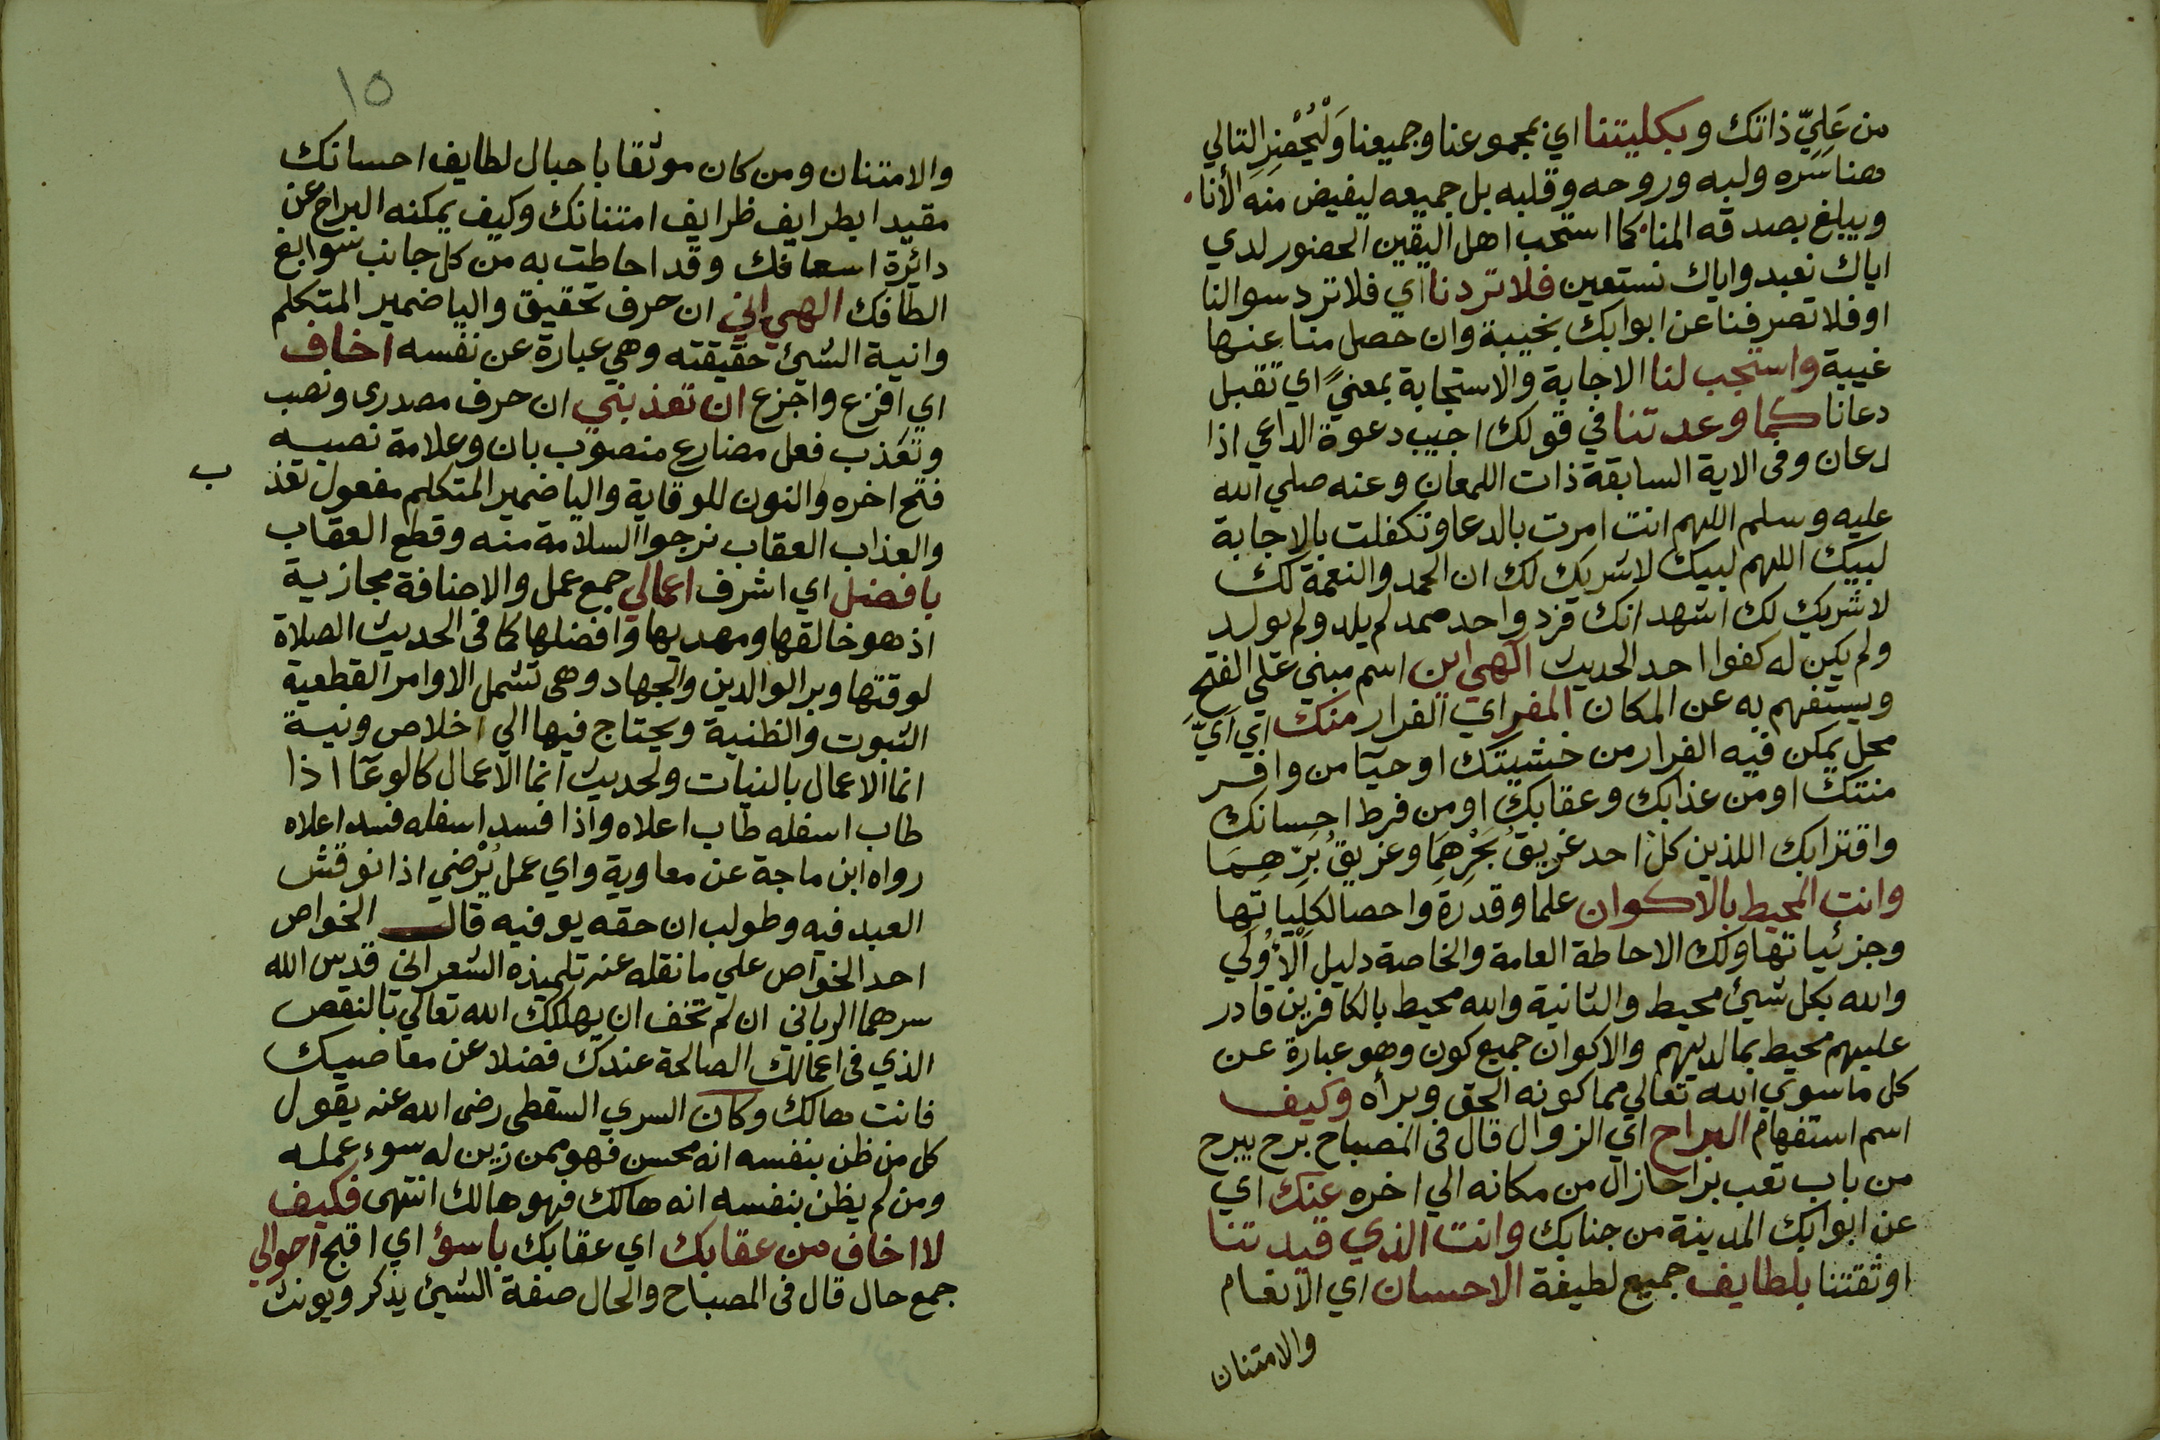 من عَلِيّ ذاتك وبكليتنا اي بمجموعنا وجميعنا وَلْيُحْضِرِ التالي
هنا سَرّه ولبه وروحه وقلبه بل جميعه ليفيض منه الأنا
ويبلغ بصدقه المنا كما استحب اهل اليقين الحضور لدي
اياك نعبد واياك نستعين فلا تردنا اي فلا ترد سوالنا
او فلا تصرفنا عن ابوابك بخيبة وان حصل منا عنها
غيبة واستجب لنا الاجابة والاستجابة بمعنيً اي تقبل
دعانا كما وعدتنا في قولك اجيب دعوة الداعي اذا
دعان وفى الاية السابقة ذات اللمعان وعنه صلي الله
عليه وسلم اللهم انت امرت بالدعا وتكفلت بالاجابة
لبيك اللهم لبيك لا شريك لك ان الحمد والنعمة لك
لا شريك لك اشهد انك فرد واحد صمد لم يلد ولم يولد
ولم يكن له كفوا احد الحديث الهي اين اسم مبني علي الفتح
ويستفهم به عن المكان المفر اي الفرار منك اي اَيَّ
محل يمكن فيه الفرار من خشيتك او حيآ من وافر
منتك او من عذابك وعقابك او من فرط احسانك
واقترابك اللذين كل احد غريق بَحْرِهِمَا وغريق بَرِّهِمَا
وانت المحيط بالاكوان علما وقدرة واحصا لكلياتها
وجزئياتها ولك الاحاطة العامة والخاصة دليل اَلْأُولَي
والله بكل شيئ محيط والثانية والله محيط بالكافرين قادر
عليهم محيط بما لديهم والاكوان جميع كون وهو عبارة عن
كل ما سوي الله تعالي مما كونه الحق وبرأه وكيف
اسم استفهام البراح اي الزوال قال فى المصباح برح يبرح
من باب تعب براحا زال من مكانه الي اخره عنك اي
عن ابوابك المدينة من جنابك وانت الذي قيدتنا
اوثقتنا بلطايف جميع لطيفة الاحسان اي الانعام
والامتنان
١٥
والامتنان ومن كان موثقا باحبال لطايف احسانك
مقيدا بطرايف ظرايف امتنانك وكيف يمكنه البراح عن
دائرة اسعافك وقد احاطت به من كل جانب سوابغ
الطافك الهي اني ان حرف تحقيق واليا ضمير المتكلم
وانية الشيئ حقيقته وهي عبارة عن نفسه اخاف
اي افزع واجزع ان تعذبني ان حرف مصدرى ونصب
وتعذب فعل مضارع منصوب بان وعلامة نصبه
فتح اخره والنون للوقاية واليا ضمير المتكلم مفعول تعذ
ب
والعذاب العقاب نرجوا السلامة منه وقطع العقاب
بافضل اي اشرف اعمالي جمع عمل والاضافة مجازية
اذ هو خالقها ومهديها وافضلها كما فى الحديث الصلاة
لوقتها وبر الوالدين والجهاد وهى تشمل الاوامر القطعية
الثبوت والظنية ويحتاج فيها الي اخلاص ونية
انما الاعمال بالنيات ولحديث انما الاعمال كالوعآ اذا
طاب اسفله طاب اعلاه واذا فسد اسفله فسد اعلاه
رواه ابن ماجة عن معاوية واي عمل يُرْضي اذا نوقش
العبد فيه وطولب ان حقه يوفيه قال الخواص
احد الخواص علي ما نقله عنه تلميذه الشعراني قدس الله
سرهما الرباني ان لم تخف ان يهلكك الله تعالي بالنقص
الذي فى اعمالك الصالحة عندك فضلا عن معاصيك
فانت هالك وكان السري السقطى رضى الله عنه يقول
كل من ظن بنفسه انه محسن فهو ممن زين له سوء عمله
ومن لم يظن بنفسه انه هالك فهو هالك انتهى فكيف
لا اخاف من عقابك اي عقابك باسوٴ اي اقبح احوالي
جمع حال قال فى المصباح والحال صفة الشيئ يذكر ويونث